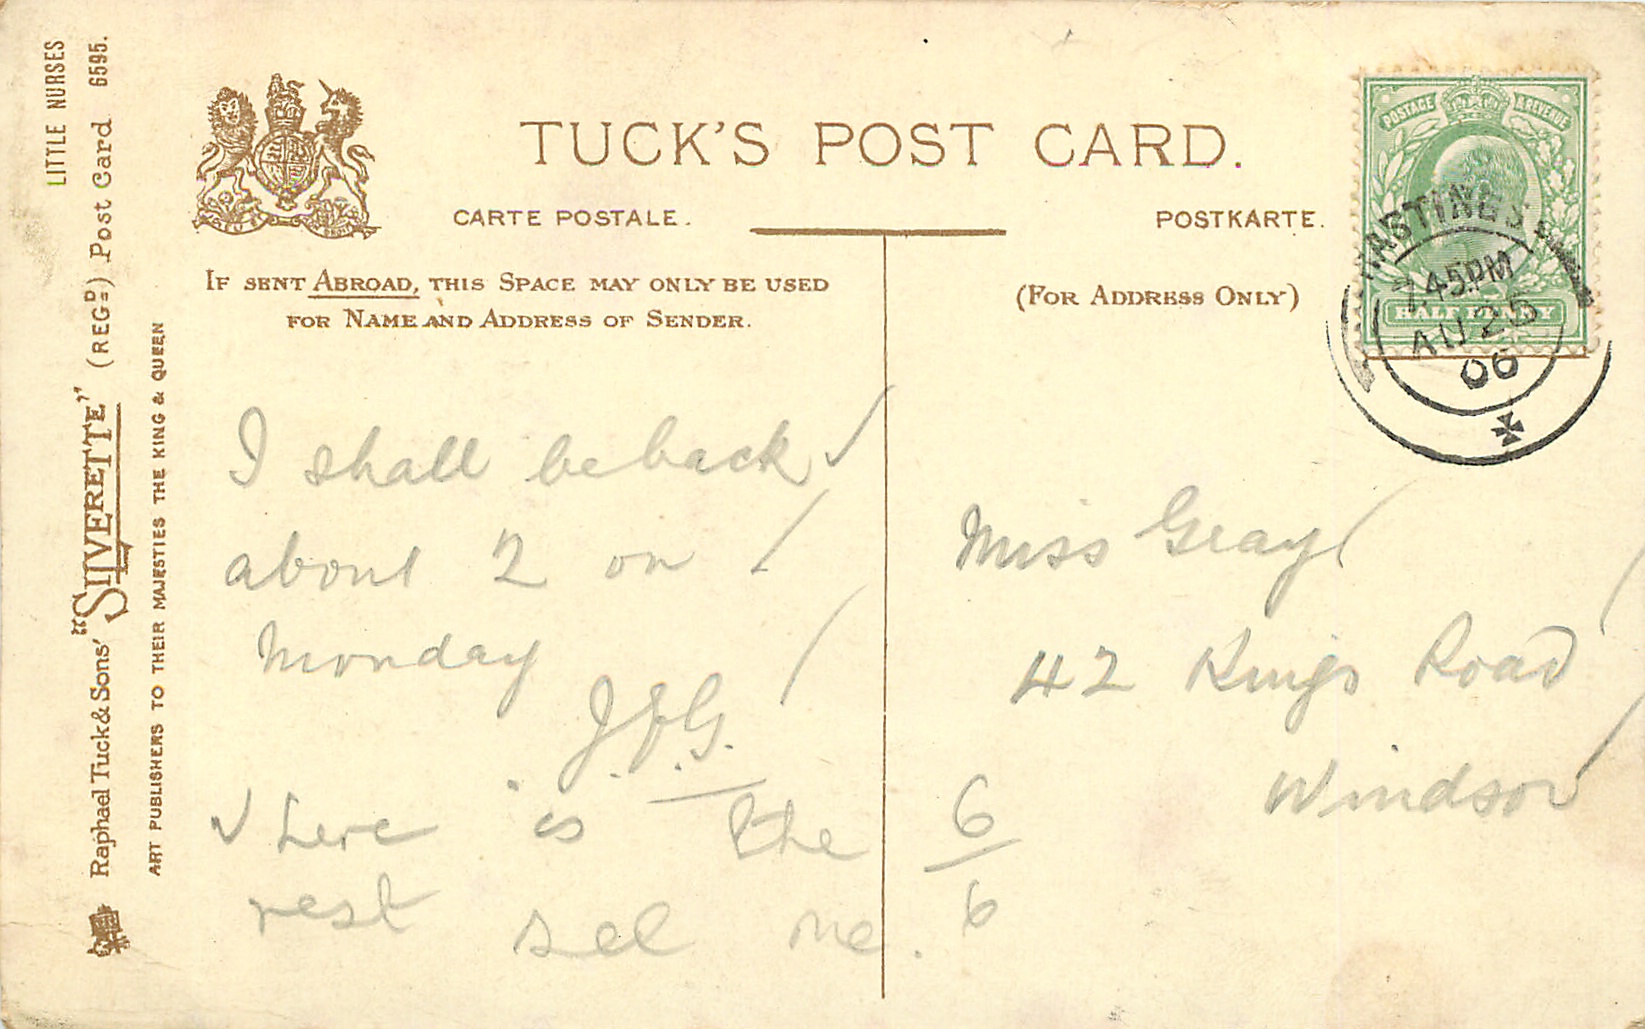 LITTLE NURSES
Raphael Tuck & Sons' "SILVERETTE" (REGD) Post Card 6595.
ART PUBLISHERS TO THEIR MAJESTIES THE KING & QUEEN
TUCK'S POST CARD.
CARTE POSTALE.
POSTKARTE.
IF SENT ABROAD, THIS SPACE MAY ONLY BE USED
FOR NAME AND ADDRESS OF SENDER.
(FOR ADDRESS ONLY)
POSTAGE & REVENUE
HALF PENNY
HASTINGS
7.45PM
AU 25
06
I shall be back
about 2 on
Monday
J.E.G.
here is the
rest see me.
Miss Gray
42 Kings Road
Windsor
6
6